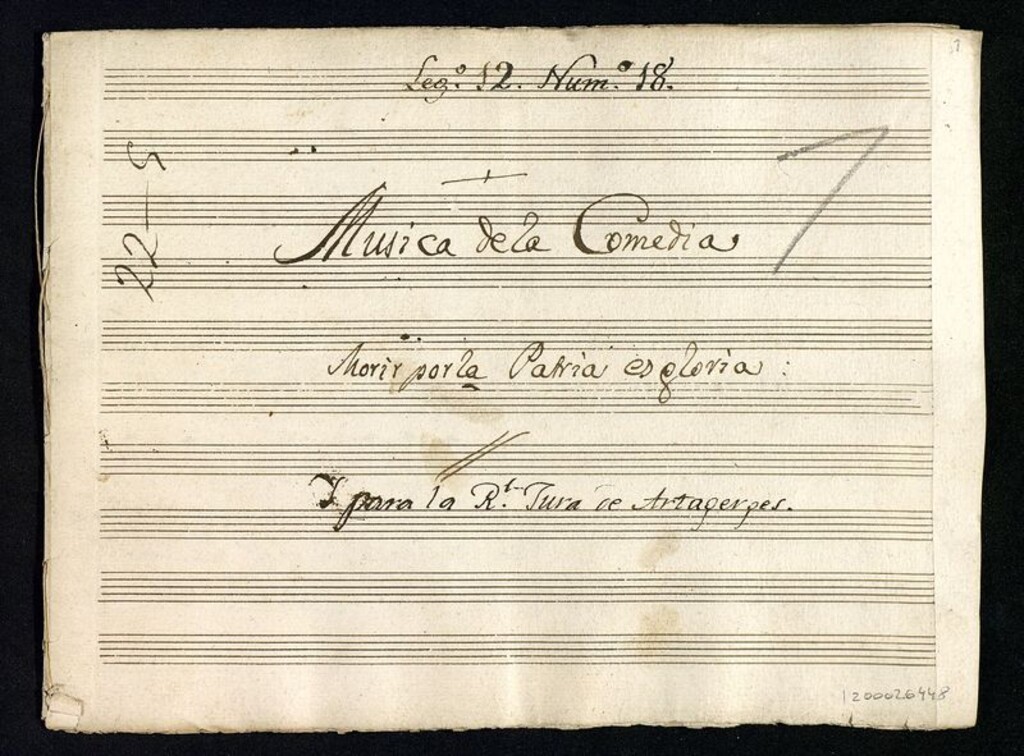 1
Leg.º 12. Num.º 18.
22-5
Musica de la Comedia
Morir por la Patria es gloria:
I para la R.l Jura de Artagerges.
1200026448